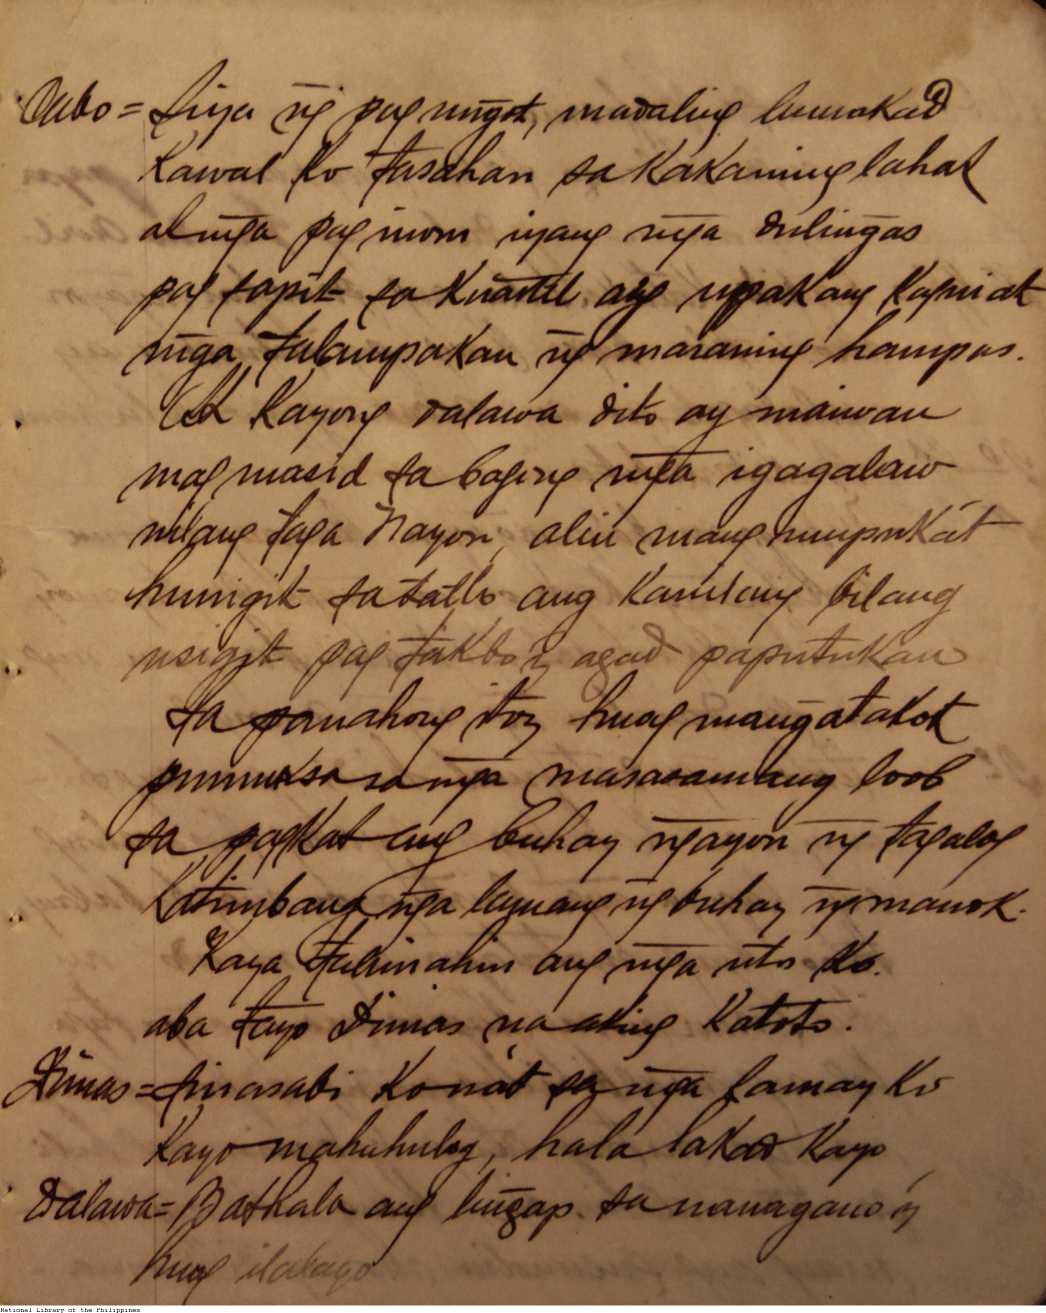 Cabo = Siya ng̃ pag ung̃ot, madaling lumakad
Kawal ko tasahan sa kakaning lahat
at mg̃a pag inom iyang mg̃a
pag sapit sa kuartel ay upakang
mg̃a talampakan ng maraming hampas.
At kayong dalawa dito ay maiwan
mag masid sa bagong mg̃a igagalaw
nilang taga Nayon, alin mang pumpukát
humigit sa tatlo ang kanilang bilang
usigit pag takbo'y agad paputukan
Sa panahong ito'y huag mang̃atakot
pumuksa sa mg̃a masasamang loob
sa pagkat ang buhay ng̃ayon ng tagalog
Katimbang ng̃a lamang ng̃ buhay ng̃ manok.
Kaya tuparin ang mg̃a utos ko.
aba tayo Dimas na aking Katoto.
Dimas = Sinasabi ko na't sa mg̃a kamay ko
Kayo mahuhulog, hala lakad kayo
Dalawa = Bathala ang ling̃ap sa nanagano'y
huag ilalayo
National Library of the Philippines